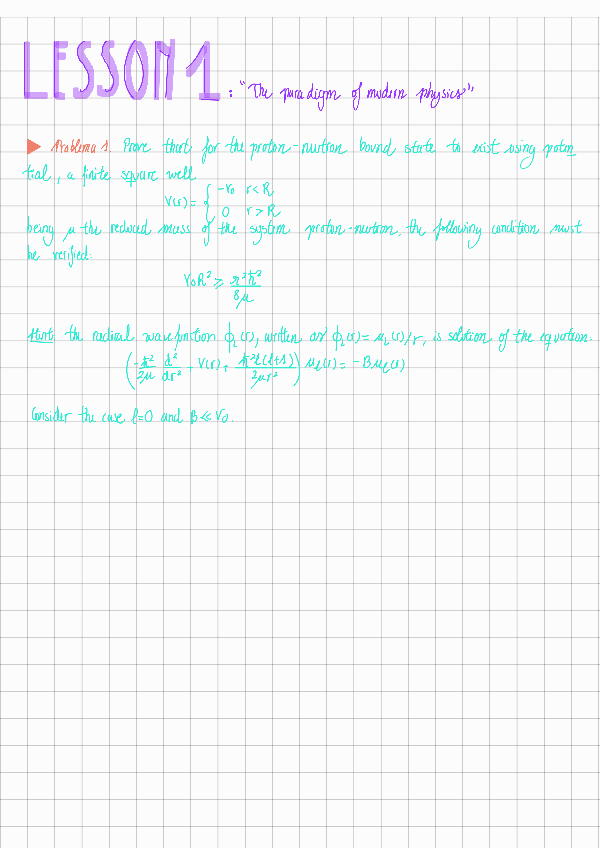 LESSON 1 : "The paradigm of modern physics"
Problema 1. Prove that for the proton-neutron bound state to exist using poten
tial, a finite square well
V(r) = { -V₀ r<R
0 r>R
being μ the reduced mass of the system proton-neutron, the following condition must
be verified:
V₀R² ⩾ π²ħ²/8μ
Hint: the radial wavefunction ϕₗ(r), written as ϕₗ(r) = uₗ(r)/r, is solution of the equation:
(-ħ²/2μ d²/dr² + V(r) + ħ²l(l+1)/2μr²) uₗ(r) = -Buₗ(r)
Consider the case l=0 and B≪V₀.